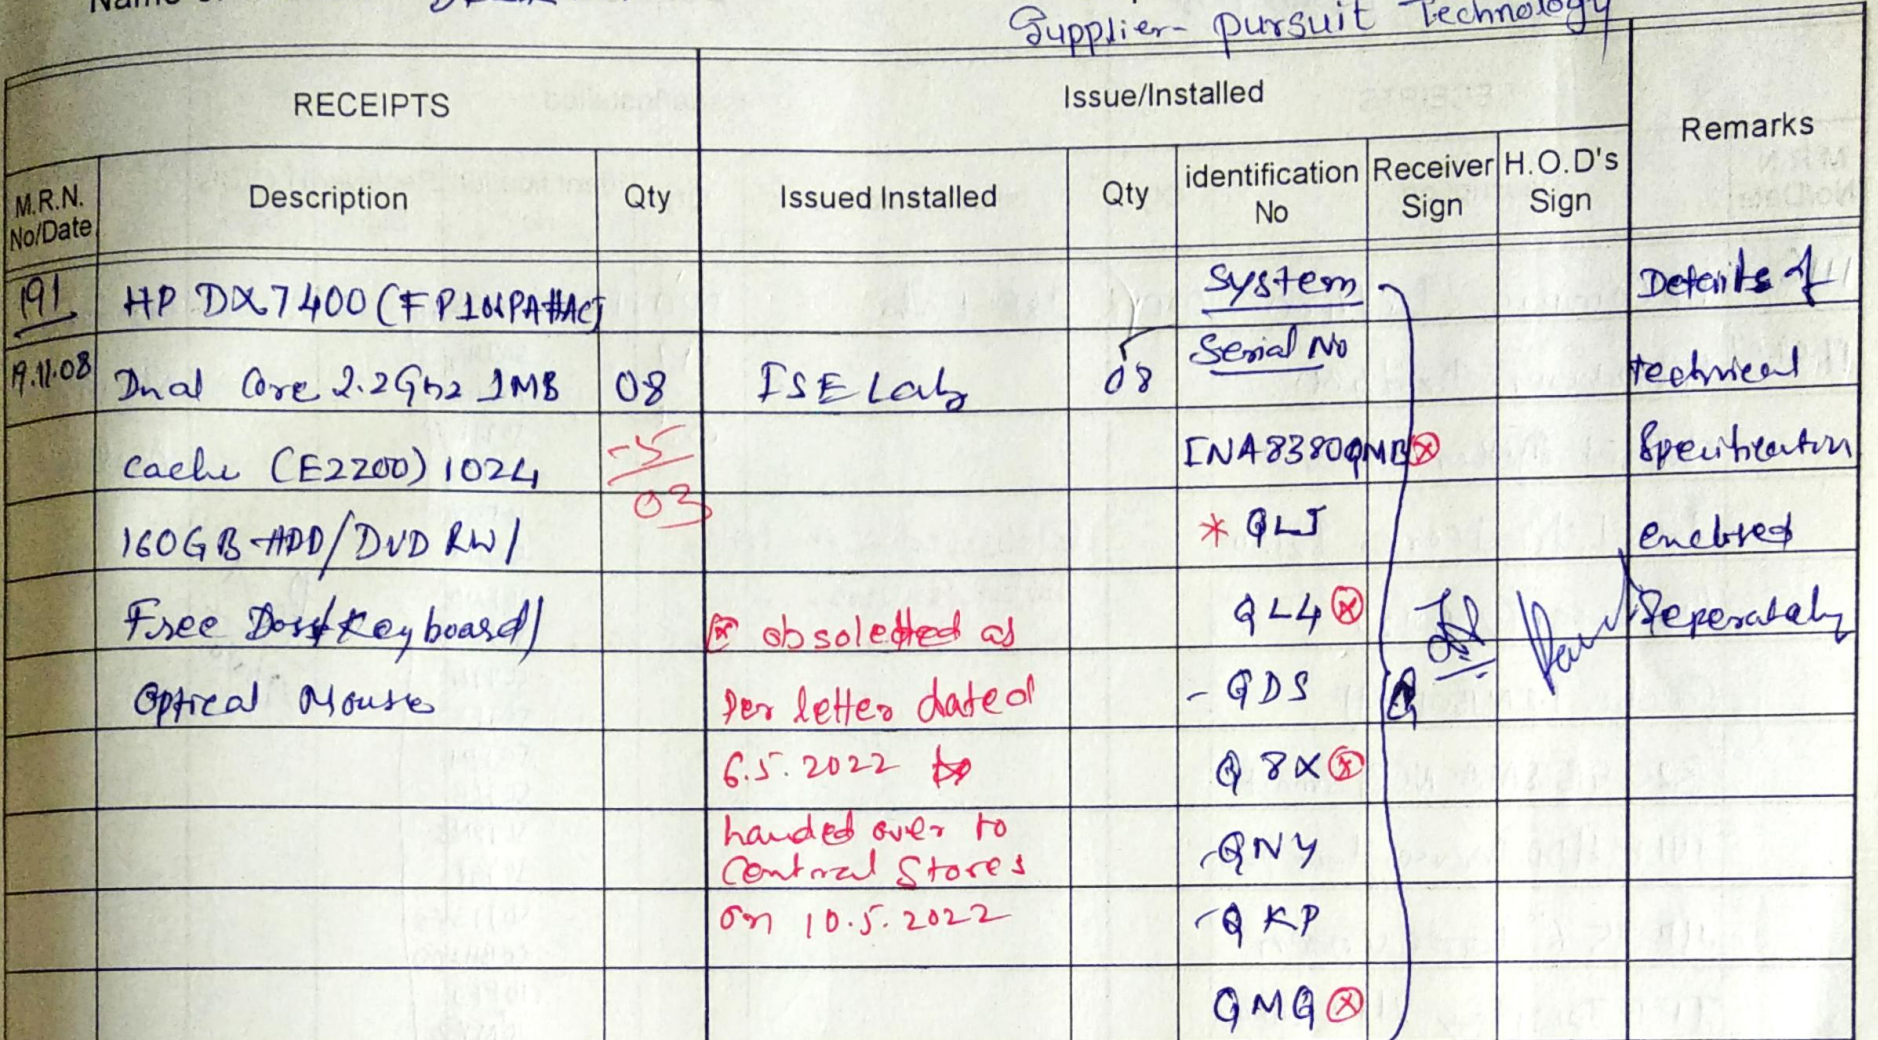 Supplier- pursuit Technology
RECEIPTS
Issue/Installed
Remarks
M.R.N. No/Date
Description
Qty
Issued Installed
Qty
identification No
Receiver Sign
H.O.D's Sign
191 HP DX7400 System Details of
19.11.08 Dual Core 2.2Ghz 1MB 08 ISE Lab 08 Serial No technical
Cache (E2200) 1024 -5 INA8380QMB Specification
03
160GB HDD/DVD RW/ * QLJ enclosed
Free Dos/Keyboard/ obsoleted as QL4 Seperately
Optical Mouse Per letter dated - QDS
6.5.2022 Q8X
handed over to
Central Stores -QNY
on 10.5.2022 -QKP
QMQ